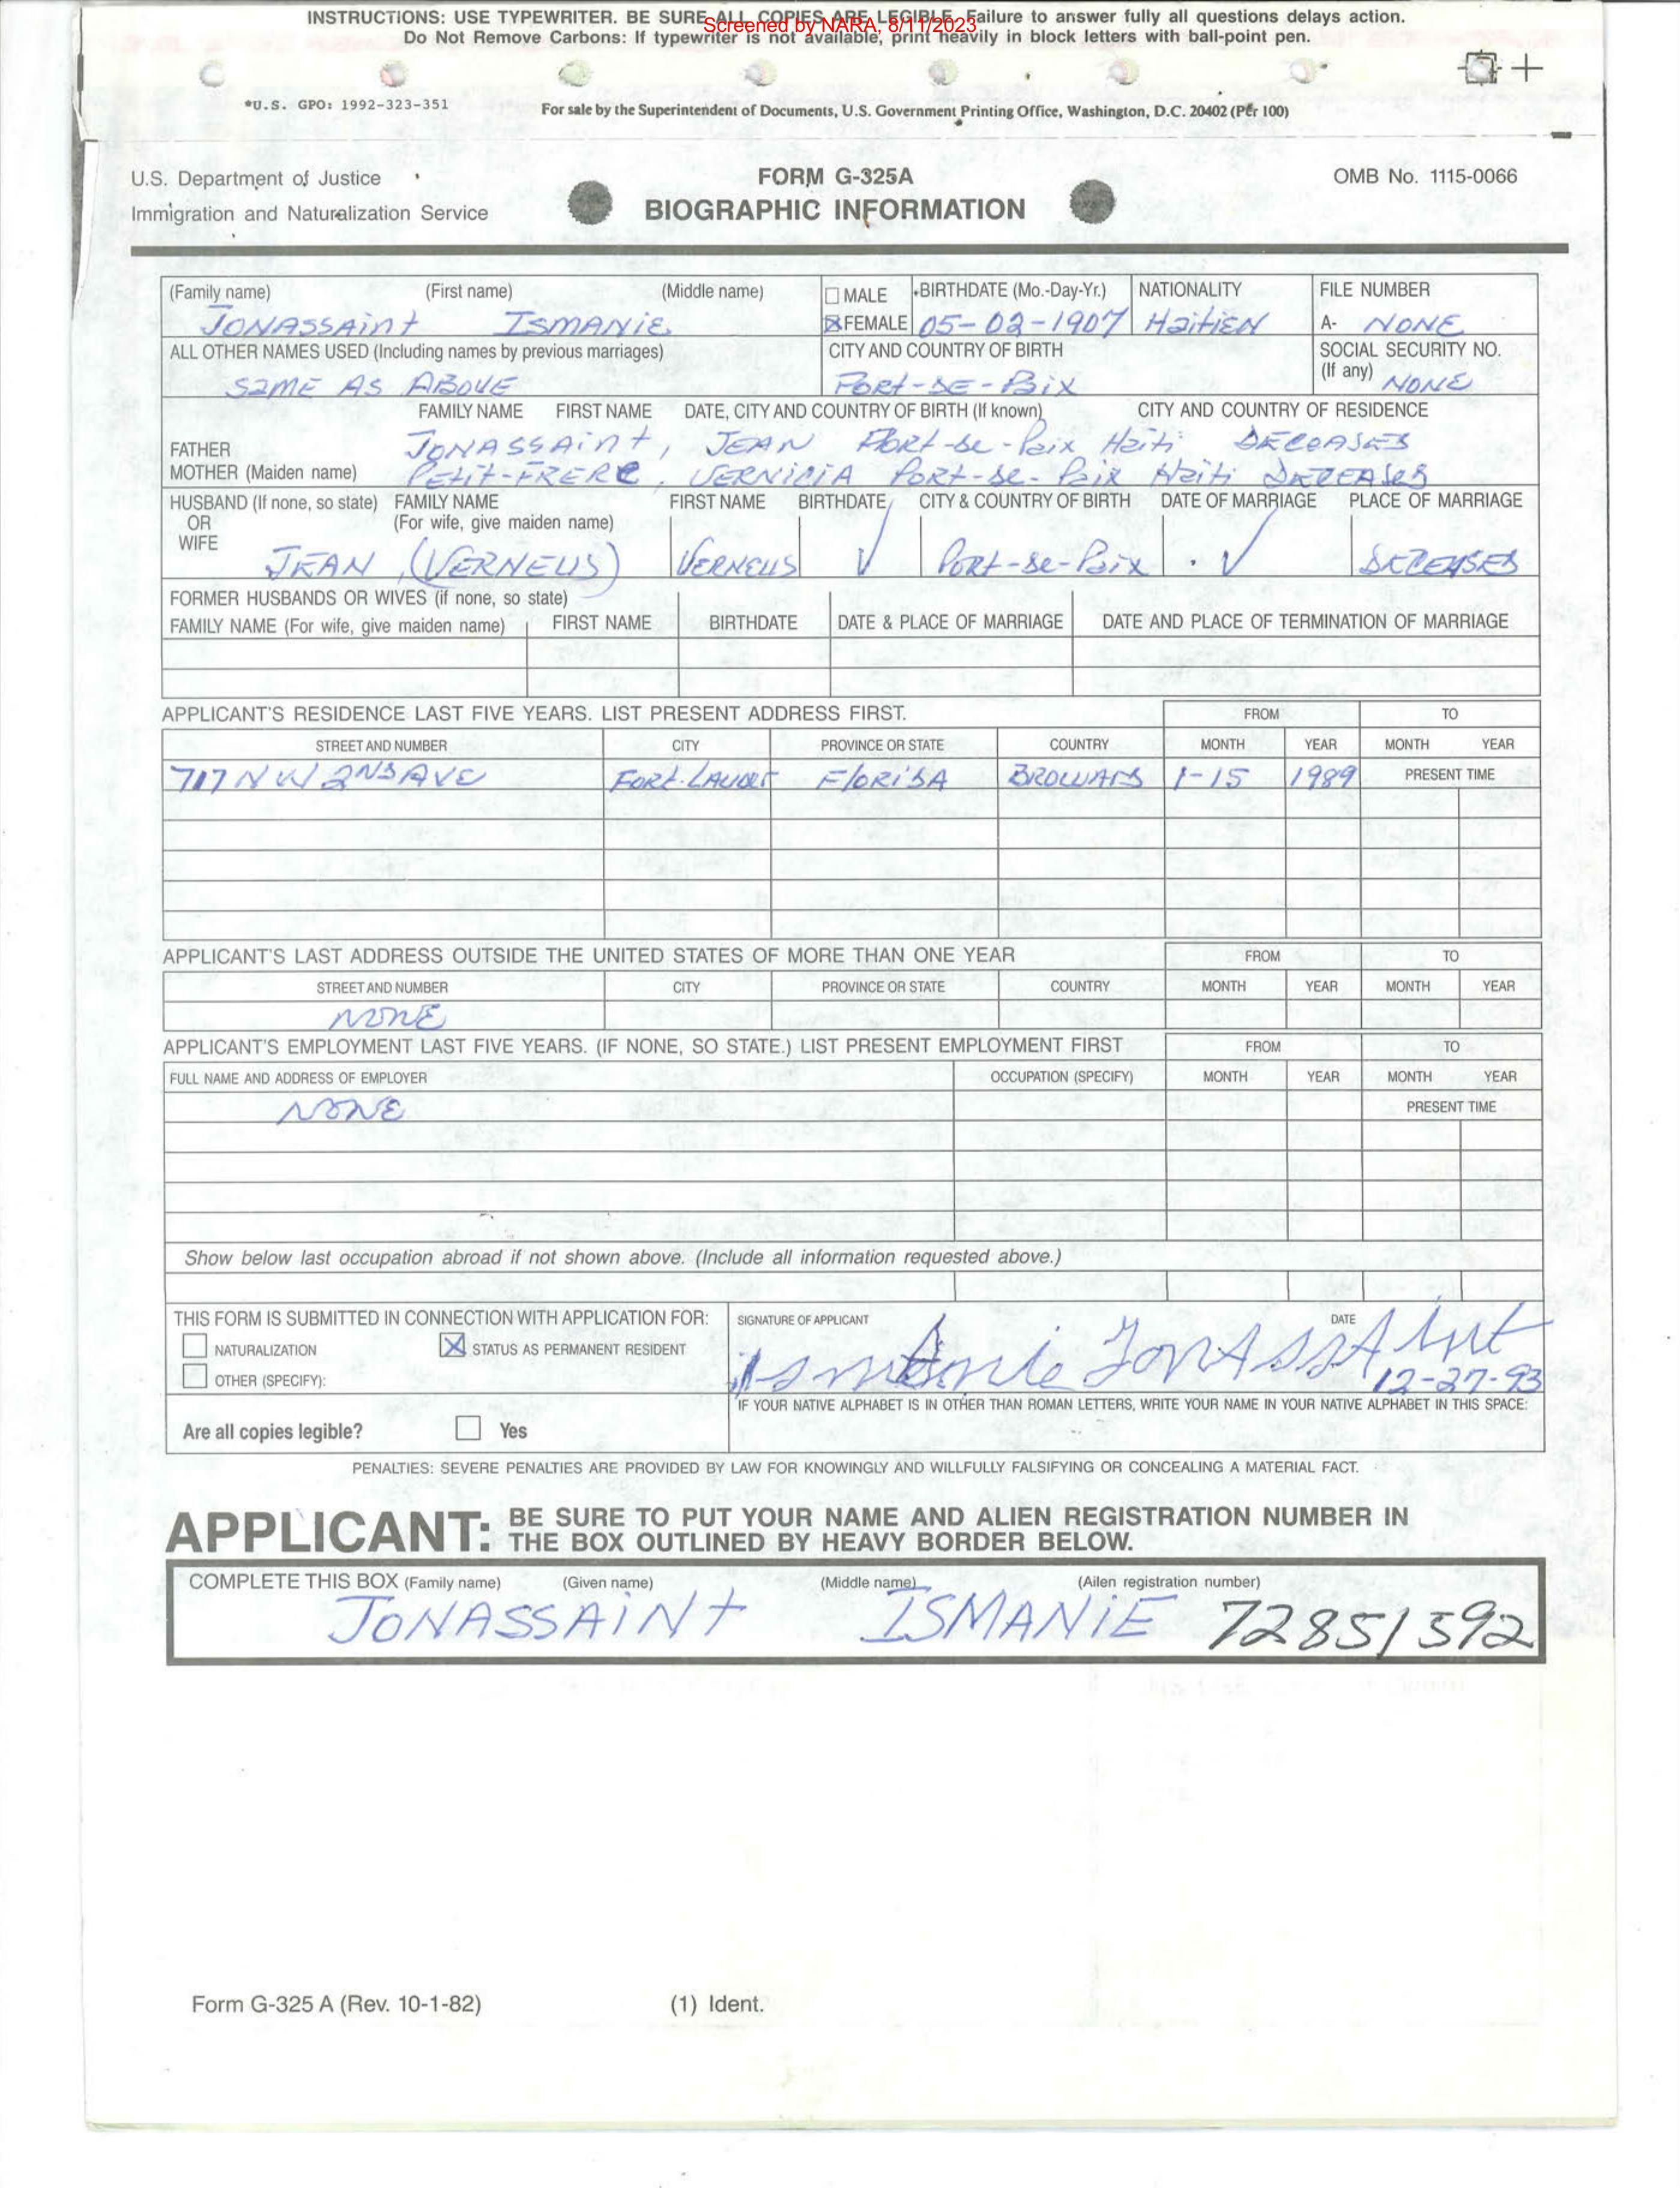 INSTRUCTIONS: USE TYPEWRITER. BE SURE ALL COPIES ARE LEGIBLE. Failure to answer fully all questions delays action.
Screened by NARA, 8/11/2023
Do Not Remove Carbons: If typewriter is not available, print heavily in block letters with ball-point pen.
*U.S. GPO: 1992-323-351
For sale by the Superintendent of Documents, U.S. Government Printing Office, Washington, D.C. 20402 (Per 100)
U.S. Department of Justice
FORM G-325A
OMB No. 1115-0066
Immigration and Naturalization Service
BIOGRAPHIC INFORMATION
(Family name) (First name) (Middle name) MALE BIRTHDATE (Mo.-Day-Yr.) NATIONALITY FILE NUMBER
JONASSAINT ISMANIE X FEMALE 05-02-1907 HAITIEN A- NONE
ALL OTHER NAMES USED (Including names by previous marriages) CITY AND COUNTRY OF BIRTH SOCIAL SECURITY NO.
(If any) NONE
SAME AS ABOVE PORT-DE-PAIX
FAMILY NAME FIRST NAME DATE, CITY AND COUNTRY OF BIRTH (If known) CITY AND COUNTRY OF RESIDENCE
FATHER JONASSAINT, JEAN PORT-de-Paix Haiti
MOTHER (Maiden name) PETIT-FRERE, VERNICIA PORT-de-Paix Haiti
HUSBAND (If none, so state) FAMILY NAME FIRST NAME BIRTHDATE CITY & COUNTRY OF BIRTH DATE OF MARRIAGE PLACE OF MARRIAGE
OR (For wife, give maiden name)
WIFE
JEAN, (VERNEUS) VERNEUS ✓ PORT-de-Paix ✓ DECEASED
FORMER HUSBANDS OR WIVES (if none, so state)
FAMILY NAME (For wife, give maiden name) FIRST NAME BIRTHDATE DATE & PLACE OF MARRIAGE DATE AND PLACE OF TERMINATION OF MARRIAGE
APPLICANT'S RESIDENCE LAST FIVE YEARS. LIST PRESENT ADDRESS FIRST. FROM TO
STREET AND NUMBER CITY PROVINCE OR STATE COUNTRY MONTH YEAR MONTH YEAR
717 NW 2ND AVE FORT. LAUDER FLORIDA BROWARD 1-15 1989 PRESENT TIME
APPLICANT'S LAST ADDRESS OUTSIDE THE UNITED STATES OF MORE THAN ONE YEAR FROM TO
STREET AND NUMBER CITY PROVINCE OR STATE COUNTRY MONTH YEAR MONTH YEAR
NONE
APPLICANT'S EMPLOYMENT LAST FIVE YEARS. (IF NONE, SO STATE.) LIST PRESENT EMPLOYMENT FIRST FROM TO
FULL NAME AND ADDRESS OF EMPLOYER OCCUPATION (SPECIFY) MONTH YEAR MONTH YEAR
NONE PRESENT TIME
Show below last occupation abroad if not shown above. (Include all information requested above.)
THIS FORM IS SUBMITTED IN CONNECTION WITH APPLICATION FOR: SIGNATURE OF APPLICANT DATE
NATURALIZATION X STATUS AS PERMANENT RESIDENT
Ismanie JONASSAINT
OTHER (SPECIFY): 12-27-93
IF YOUR NATIVE ALPHABET IS IN OTHER THAN ROMAN LETTERS, WRITE YOUR NAME IN YOUR NATIVE ALPHABET IN THIS SPACE:
Are all copies legible? Yes
PENALTIES: SEVERE PENALTIES ARE PROVIDED BY LAW FOR KNOWINGLY AND WILLFULLY FALSIFYING OR CONCEALING A MATERIAL FACT.
APPLICANT: BE SURE TO PUT YOUR NAME AND ALIEN REGISTRATION NUMBER IN
THE BOX OUTLINED BY HEAVY BORDER BELOW.
COMPLETE THIS BOX (Family name) (Given name) (Middle name) (Ailen registration number)
JONASSAINT ISMANIE 72851592
Form G-325 A (Rev. 10-1-82) (1) Ident.